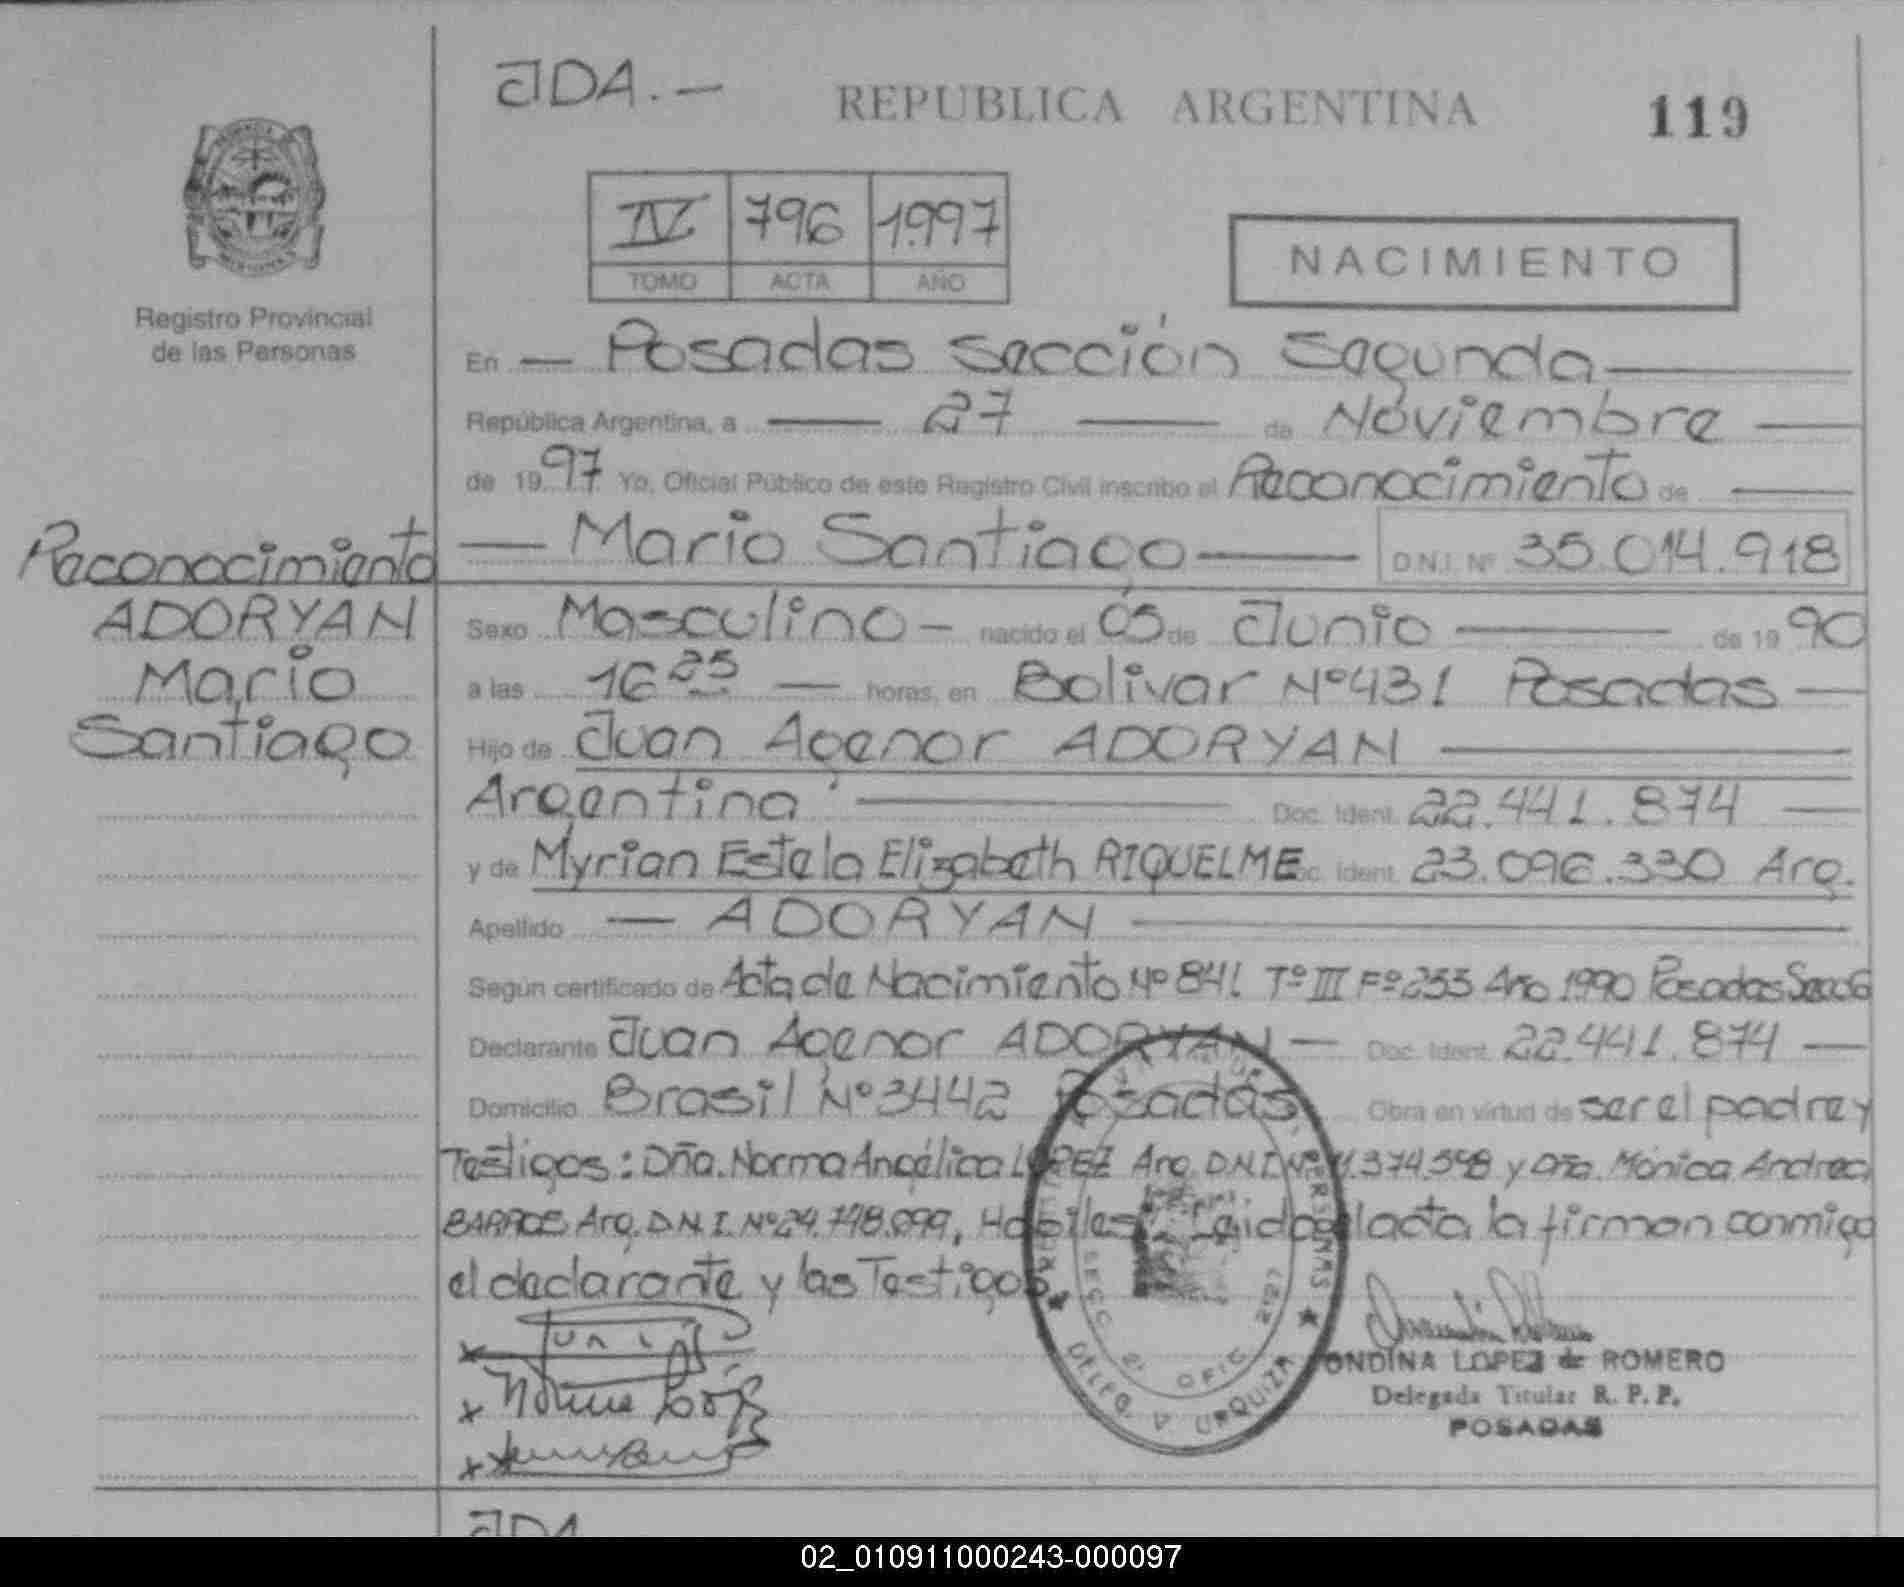 JDA.-
REPUBLICA ARGENTINA
119
IV 796 1997
TOMO ACTA AÑO
NACIMIENTO
Registro Provincial
de las Personas
En Posadas Sección Segunda
República Argentina, a 27 de Noviembre
de 1997 Yo, Oficial Público de este Registro Civil inscribo el Reconocimiento de
Mario Santiago D.N.I. Nº 35.014.918
Reconocimiento
ADORYAN
Mario
Santiago
Sexo Masculino - nacido el 05 de Junio de 1990
a las 16 25 horas, en Bolivar Nº 431 Posadas
Hijo de Juan Agenor ADORYAN
Argentina Doc. Ident. 22.441.874
y de Myrian Estela Elizabeth RIQUELME Doc. Ident. 23.096.330 Arg.
Apellido ADORYAN
Según certificado de Acta de Nacimiento Nº 841 Tº III Fº 253 Año 1990 Posadas
Declarante Juan Agenor ADORYAN Doc. Ident. 22.441.874
Domicilio Brasil Nº 3442 Posadas Obra en virtud de ser el padre y
Testigos: Dña. Norma Angélica LOPEZ Arg. D.N.I. Nº .374.598 y Dña. Mónica Andrea
BARROS Arg. D.N.I. Nº 24.748.099, Habiles. Leida el acta la firman conmigo
el declarante y las Testigos.
ONDINA LOPEZ de ROMERO
Delegada Titular R. P. P.
POSADAS
SECC 2ª OFIC 2127
DELEG. V. URQUIZA
JDA
02_010911000243-000097